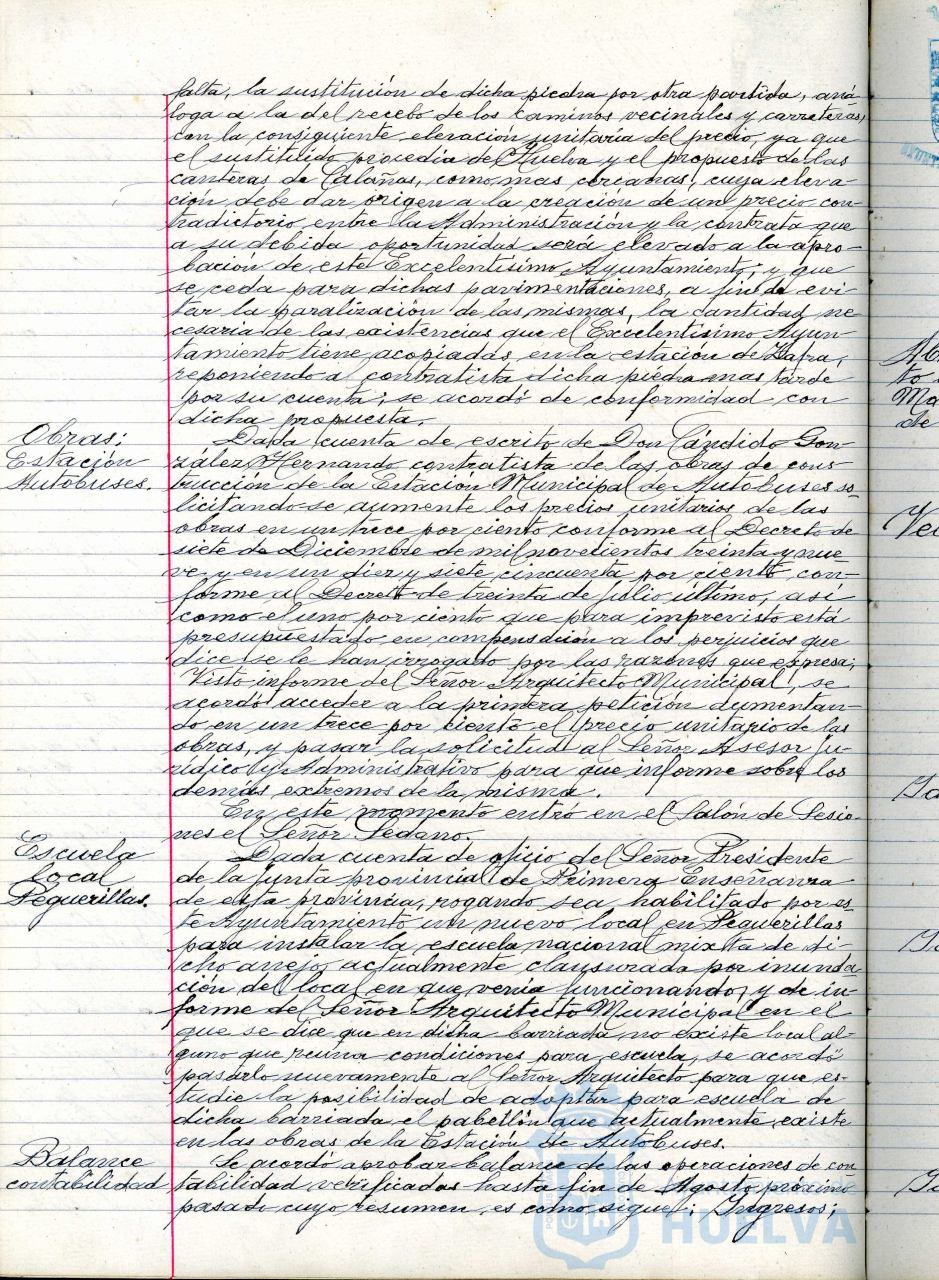 falta, la sustitución de dicha piedra por otra partida, aná-
loga a la del recebo de los caminos vecinales y carreteras,
con la consiguiente elevación unitaria del precio, ya que
el sustituido procedía de Huelva y el propuesto de las
canteras de Calañas, como mas cercanas, cuya eleva-
ción debe dar origen a la creación de un precio con-
tradictorio entre la Administración y la contrata que
a su debida oportunidad será elevado a la apro-
bación de este Excelentísimo Ayuntamiento; y que
se ceda para dichas pavimentaciones, a fin de evi-
tar la paralización de las mismas, la cantidad ne-
cesaria de las existencias que el Excelentísimo Ayun-
tamiento tiene acopiadas en la estación de Zafra,
reponiendo al contratista dicha piedra mas tarde
por su cuenta; se acordó de conformidad con
dicha propuesta.
Obras;
Estación
Autobuses.
Dada cuenta de escrito de Don Cándido Gon-
zález Hernando contratista de las obras de cons-
trucción de la Estación Municipal de Autobuses so-
licitando se aumente los precios unitarios de las
obras en un trece por ciento conforme al Decreto de
siete de Diciembre de mil novecientos treinta y nue
ve, y en un diez y siete cincuenta por ciento con-
forme al Decreto de treinta de julio último, asi
como el uno por ciento que para imprevisto está
presupuestado en compensación a los perjuicios que
dice se le han irrogado por las razones que expresa;
Visto informe del Señor Arquitecto Municipal, se
acordó acceder a la primera petición aumentan-
do en un trece por ciento el precio unitario de las
obras, y pasar la solicitud al Señor Asesor Ju-
rídico y Administrativo para que informe sobre los
demas extremos de la misma.
En este momento entró en el Salón de Sesio-
nes el Señor Sedano.
Escuela
local
Peguerillas.
Dada cuenta de oficio del Señor Presidente
de la Junta provincial de Primera Enseñanza
de esta provincia, rogando sea habilitado por es-
te Ayuntamiento un nuevo local en Peguerillas
para instalar la escuela nacional mixta de di-
cho anejo, actualmente clausurada por inunda-
ción del local en que venía funcionando; y de in-
forme del Señor Arquitecto Municipal en el
que se dice que en dicha barriada no existe local al-
guno que reuna condiciones para escuela, se acordó
pasarlo nuevamente al Señor Arquitecto para que es-
tudie la posibilidad de adoptar para escuela de
dicha barriada el pabellón que actualmente existe
en las obras de la Estación de Autobuses.
Balance
contabilidad
Se acordó aprobar balance de las operaciones de con
tabilidad verificadas hasta fin de Agosto próximo
pasado cuyo resumen es como sigue: Ingresos;
HUELVA